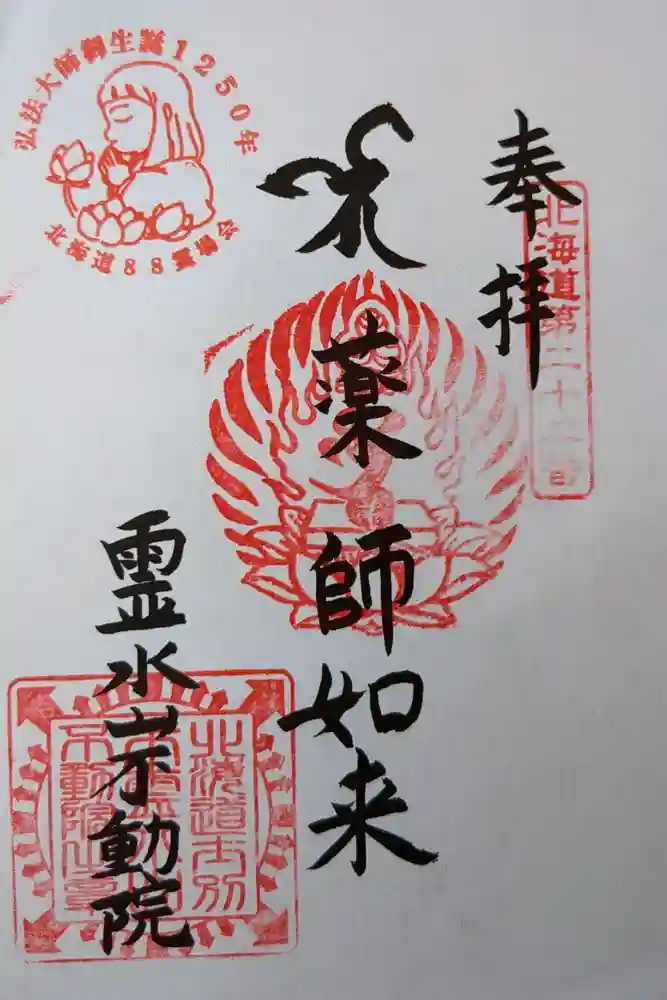 奉拝
北海道第二十二番
薬師如来
霊水山不動院
弘法大師御生誕1250年
北海道88霊場
北海道士別